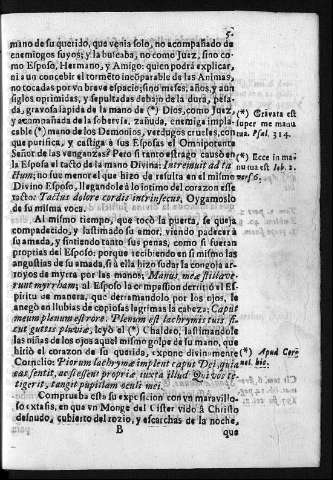 5.
mano de su querido, que venia solo, no acompañado de
enemiogos suyos; y la buscaba, no como Juez, sino co
mo Esposo, Hermano, y Amigo: quien podrá explicar,
ni a un concebir el tormẽto incõparable de las Animas,
no tocadas por vn breve espacio; sino mises, años, y aun
siglos oprimidas, y sepultadas debajo de la dura, pesa-
da, gravosa lapida de la mano de (*) Dios, como Juez,
y acompañada de la sobervia, zañuda, enemiga impla-
cable (*) mano de los Demonios, verdugos crueles, con
que purifica, y castiga à sus Esposas el Omnipotente
Señor de las venganzas? Pero si tanto estrago causò en
la Esposa el tacto de la mano Divina: Intremuit ad ta
ctum; no fue menor el que hizo de resulta en el mismo
Divino Esposo, llegandole à lo intimo del corazon esse
tacto: Tactus dolore cordis intrinsecus, Oygamoslo
de su misma voca.
Al mismo tiempo, que tocò la puerta, se queja
compadecido, y lastimado su amor, viendo padecer à
su amada, y sintiendo tanto sus penas, como si fueran
proprias del Esposo: porque recibiendo en si mismo las
angustias de su amada, si à ella hizo sudar la congoja ar-
royos de myrra por las manos; Manus meæ stillave-
runt myrrham; al Esposo la compassion derritiò el Es-
piritu de manera, que derramandolo por los ojos, le
anegò en llubias de copiosas lagrimas la cabeza: Caput
meum plenum est rore. Plenum est lachrymis tuis, si-
cut guttis pluviæ, leyò el (*) Chaldeo, lastimandole
las niñas de los ojos aquel mismo golpe de su mano, que
hiriò el corazon de su querida, expone divinmente
Cornelio: Piorum lachrymæ implent caput Dei, quia
eas sentit, ac si essent propriæ iuxta illud Qui vos te-
tigerit, tangit pupillam oculi mei.
Comprueba esta su exposicion con vn maravillo-
so extasis, en que vn Monge del Cister vido à Christo
desnudo, cubierto del rozio, y escarchas de la noche,
B
que
(*) Gravata est
super me manus
tua. Psal. 314.
(*) Ecce in ma
nu tua est Iob. 2.
vers 6.
(*) Apud Cor
nel. hic.